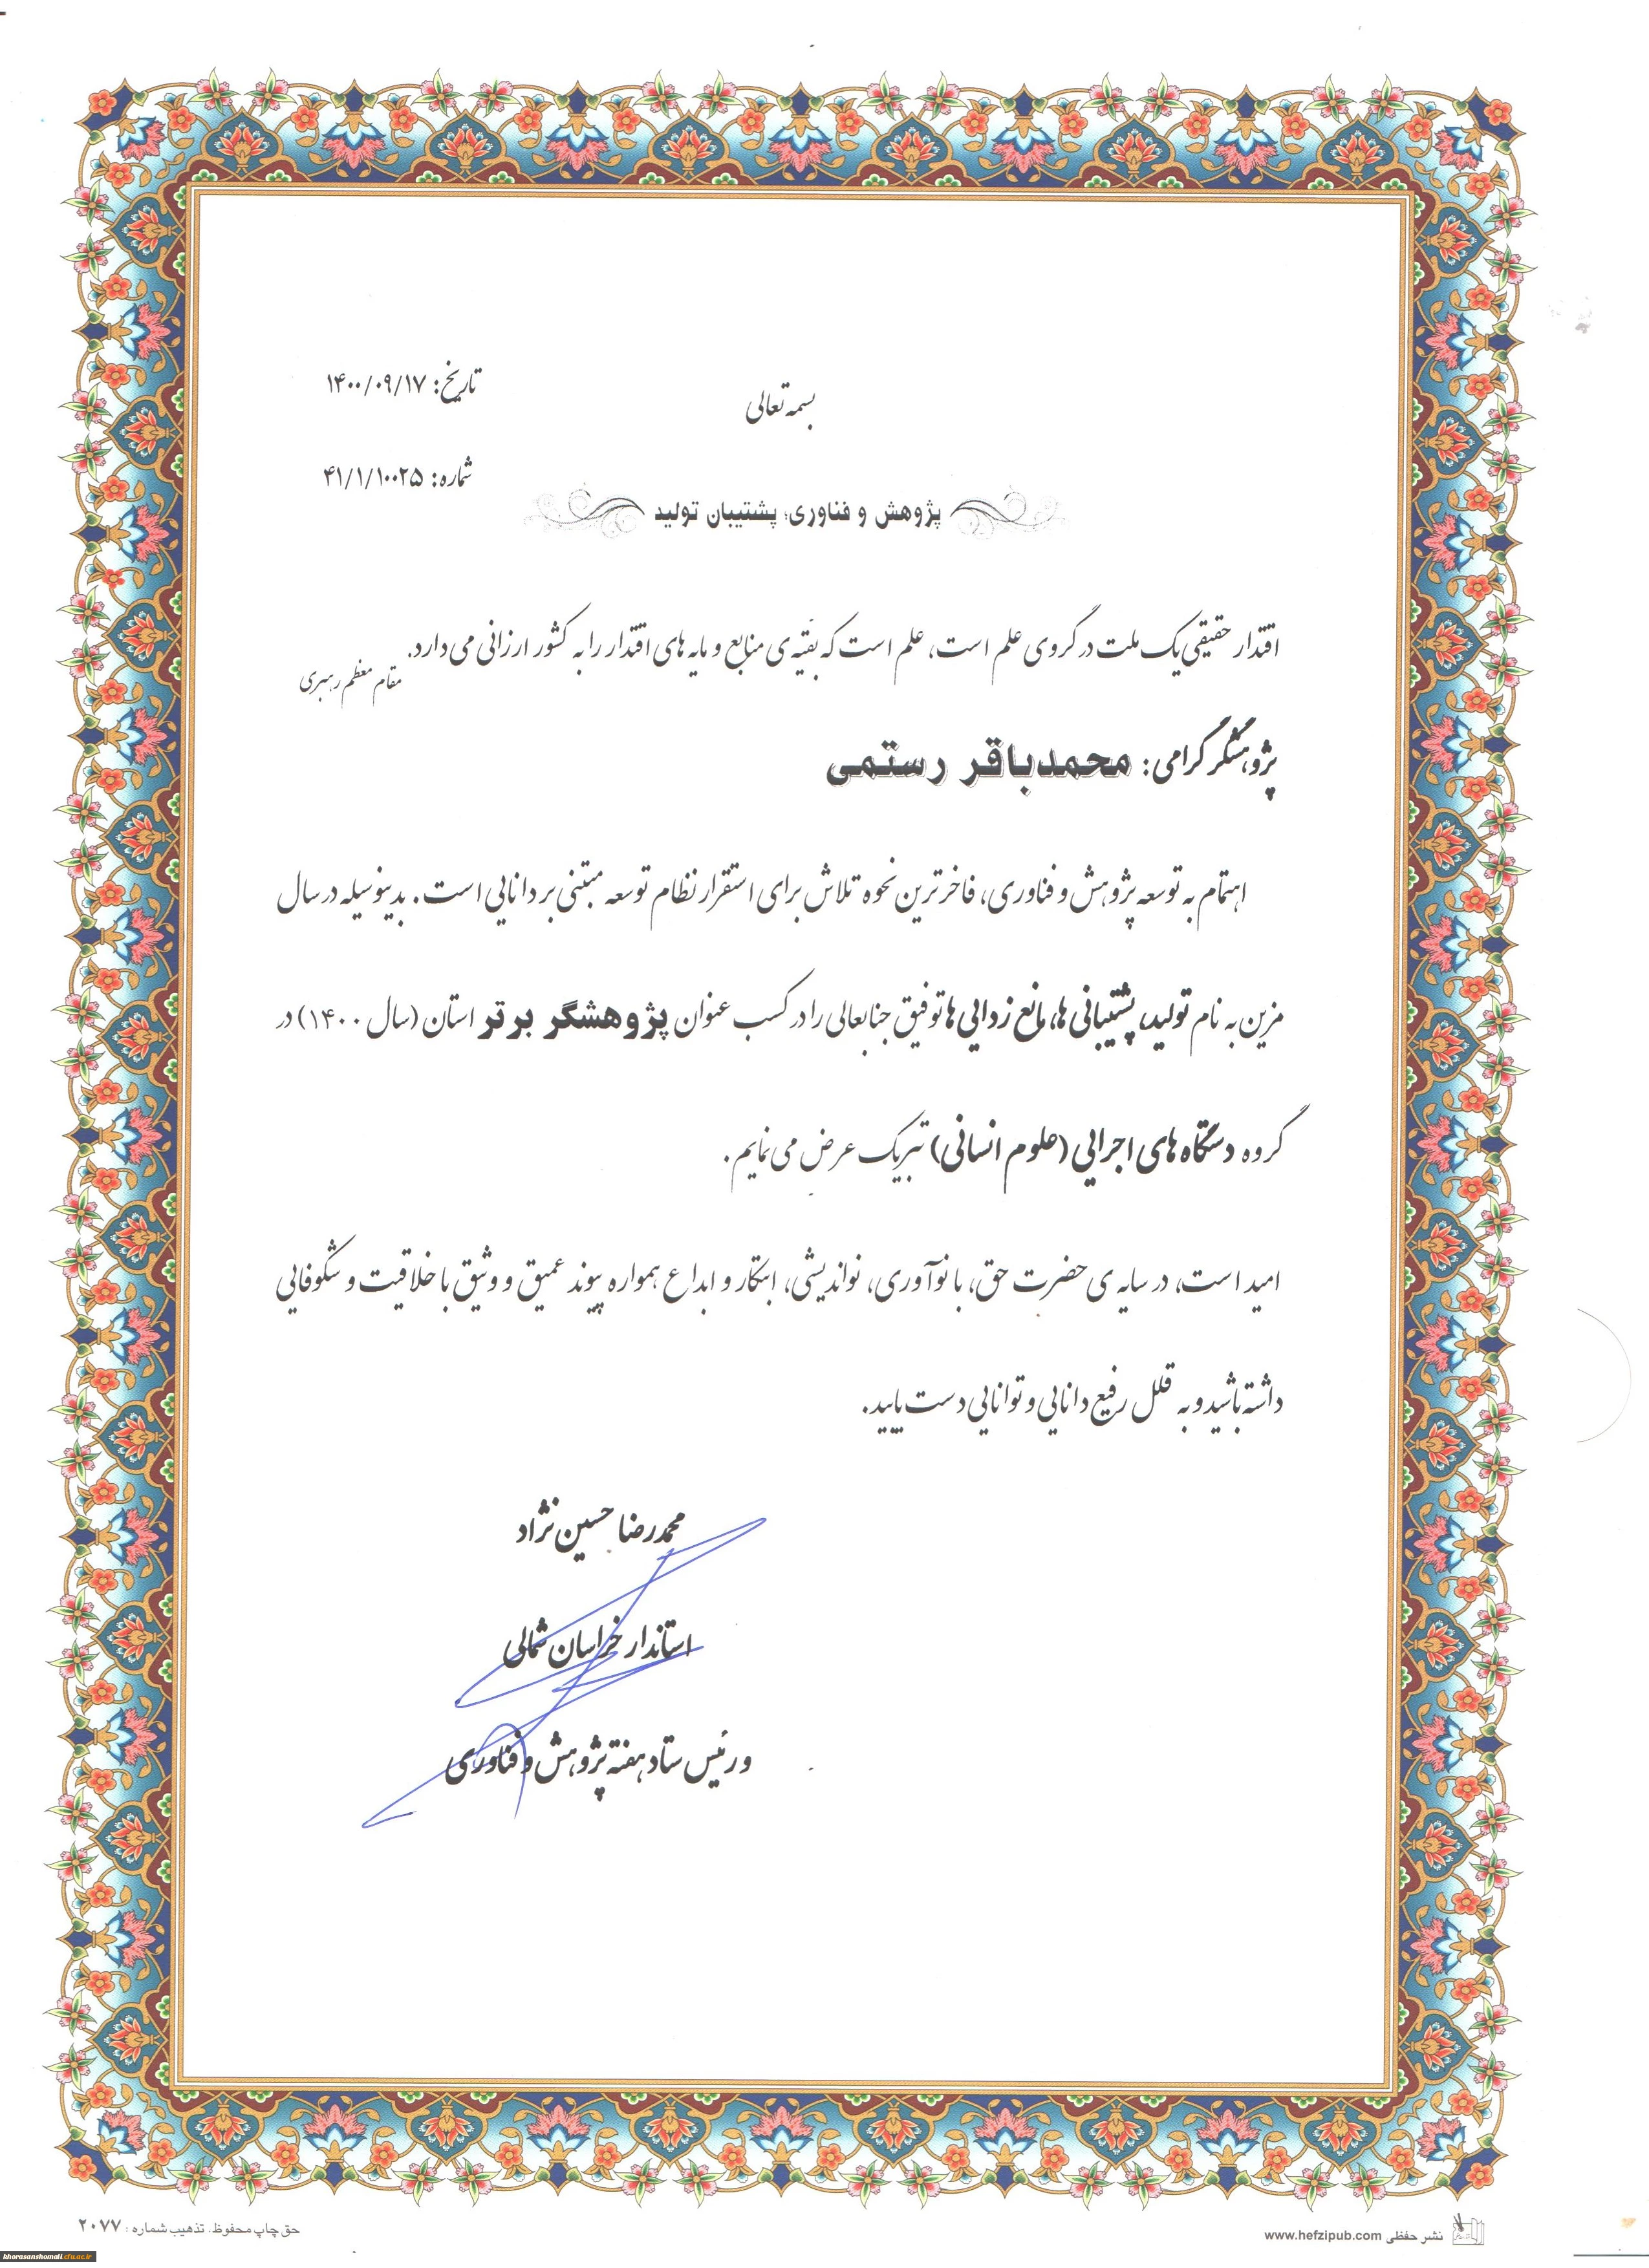 بسمه تعالی
تاریخ: ۱۴۰۰/۰۹/۱۷
شماره: ۴۱/۱/۱۰۰۲۵
پژوهش و فناوری، پشتیبان تولید
اقتدار حقیقی یک ملت در گروی علم است، علم است که بقیّه‌ی منابع و مایه های اقتدار را به کشور ارزانی می دارد.
مقام معظم رهبری
پژوهشگر گرامی: محمدباقر رستمی
اهتمام به توسعه پژوهش و فناوری، فاخرترین نحوه تلاش برای استقرار نظام توسعه مبتنی بر دانایی است. بدینوسیله در سال
مزین به نام تولید، پشتیبانی ها، مانع زدایی ها توفیق جنابعالی را در کسب عنوان پژوهشگر برتر استان (سال ۱۴۰۰) در
گروه دستگاه های اجرایی (علوم انسانی) تبریک عرض می نمایم.
امید است، در سایه ی حضرت حق، با نوآوری، نواندیشی، ابتکار و ابداع همواره پیوند عمیق و وثیق با خلاقیت و شکوفایی
داشته باشید و به قلل رفیع دانایی و توانایی دست یابید.
محمدرضا حسین نژاد
استاندار خراسان شمالی
و رئیس ستاد هفته پژوهش و فناوری
نشر حفظی www.hefzipub.com
حق چاپ محفوظ. تذهیب شماره: ۲۰۷۷
khorasanshomali.cfu.ac.ir